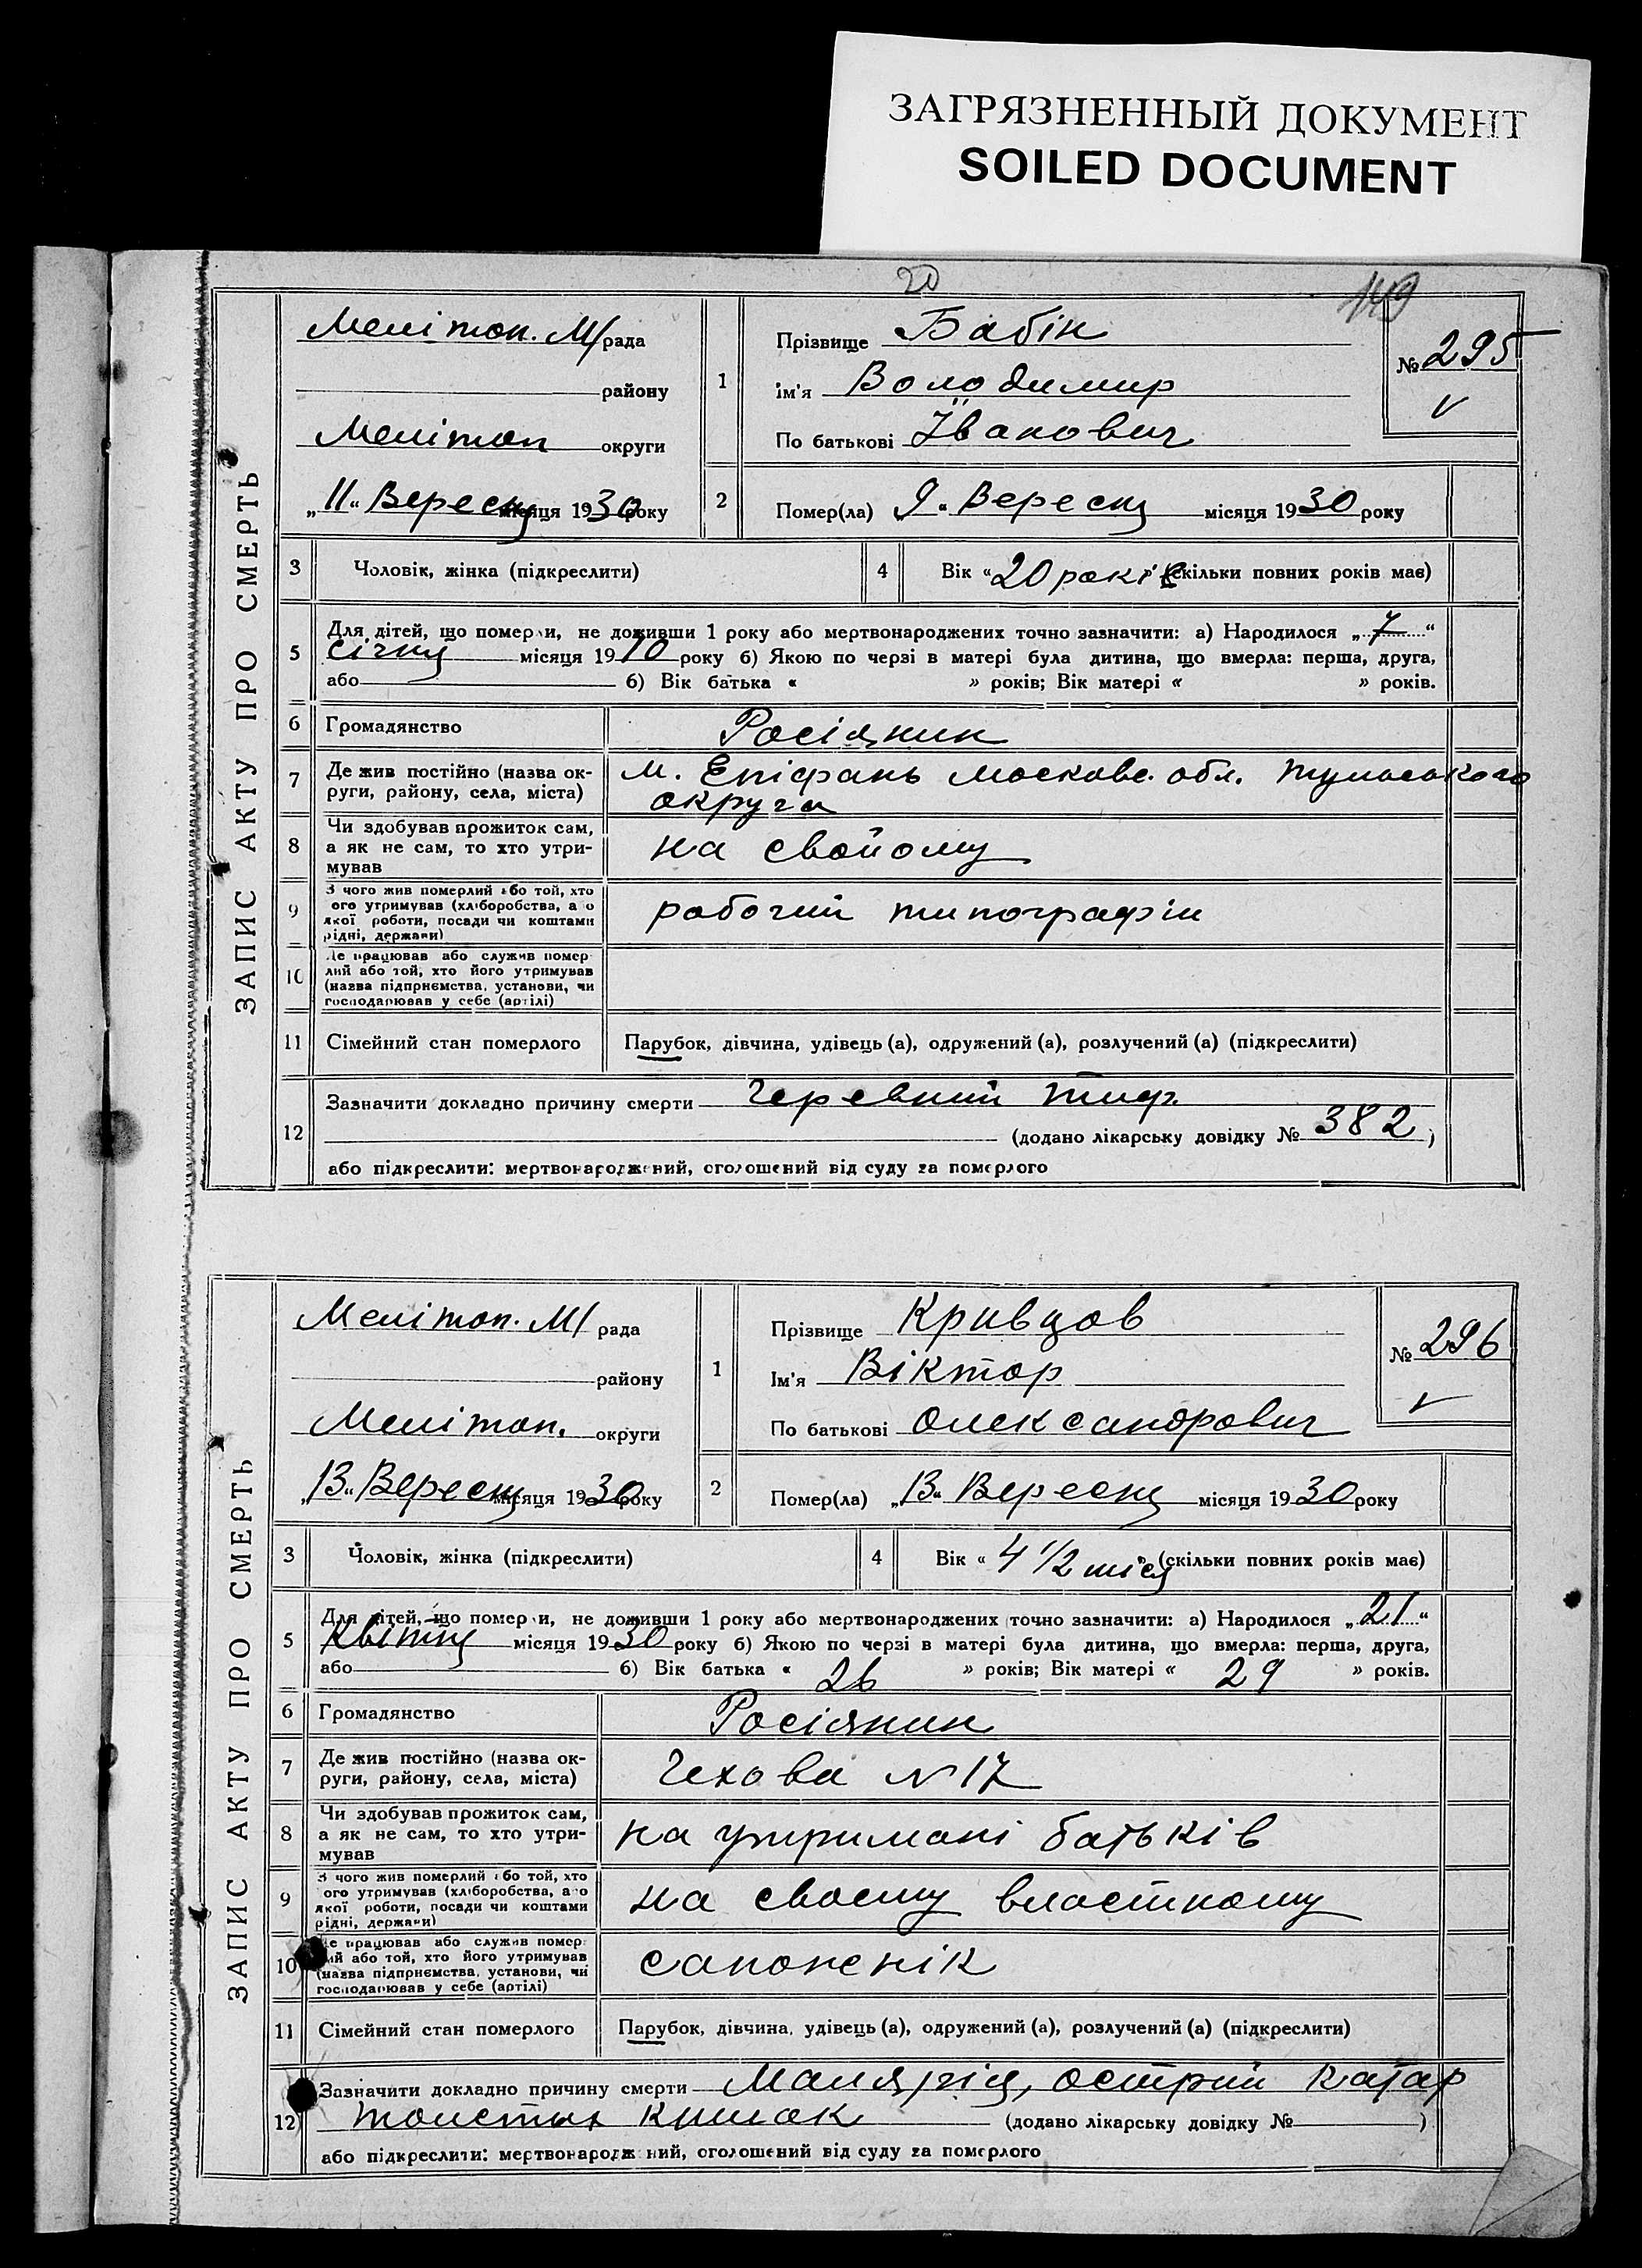 ЗАГРЯЗНЕННЫЙ ДОКУМЕНТ
SOILED DOCUMENT
20
149
ЗАПИС АКТУ ПРО СМЕРТЬ
Мелітоп. М/рада
району
Мелітоп округи
„11“ Вересня місяця 1930 року
1
Прізвище Бабін
Ім'я Володимир
По батькові Іванович
№ 295
2 Помер(ла) „9“ Вересня місяця 1930 року
3 Чоловік, жінка (підкреслити)
4 Вік «20 років» (скільки повних років має)
5 Для дітей, що померли, не доживши 1 року або мертвонароджених точно зазначити: а) Народилося „7“
січня місяця 1910 року б) Якою по черзі в матері була дитина, що вмерла: перша, друга,
або б) Вік батька « » років; Вік матері « » років.
6 Громадянство Росіянин
7 Де жив постійно (назва ок-
руги, району, села, міста)
м. Епіфань московс. обл. тульського
округа
8 Чи здобував прожиток сам,
а як не сам, то хто утри-
мував
на свойому
9 З чого жив померлий або той, хто
ого утримував (хліборобства, а о
якої роботи, посади чи коштами
рідні, держави)
робочий типографіи
10 Де працював або служив помер
лий або той, хто його утримував
(назва підприємства, установи, чи
господарював у себе (артілі)
11 Сімейний стан померлого Парубок, дівчина, удівець (а), одружений (а), розлучений (а) (підкреслити)
12 Зазначити докладно причину смерти Черевний тиф
(додано лікарську довідку № 382)
або підкреслити: мертвонароджений, оголошений від суду за померлого
ЗАПИС АКТУ ПРО СМЕРТЬ
Мелітоп. М/ рада
району
Мелітоп. округи
„13“ Вересня місяця 1930 року
1
Прізвище Кривцов
Ім'я Віктор
По батькові Олександрович
№ 296
2 Помер(ла) „13“ Вересня місяця 1930 року
3 Чоловік, жінка (підкреслити)
4 Вік «4 1/2 міся» (скільки повних років має)
5 Для дітей, що померли, не доживши 1 року або мертвонароджених точно зазначити: а) Народилося „21“
Квітня місяця 1930 року б) Якою по черзі в матері була дитина, що вмерла: перша, друга,
або б) Вік батька « 26 » років; Вік матері « 29 » років.
6 Громадянство Росіянин
7 Де жив постійно (назва ок-
руги, району, села, міста)
Чехова N 17
8 Чи здобував прожиток сам,
а як не сам, то хто утри-
мував
на утримані батьків
9 З чого жив померлий або той, хто
ого утримував (хліборобства, а о
якої роботи, посади чи коштами
рідні, держави)
на своєму властному
10 Де працював або служив помер
лий або той, хто його утримував
(назва підприємства, установи, чи
господарював у себе (артілі)
сапожнік
11 Сімейний стан померлого Парубок, дівчина, удівець (а), одружений (а), розлучений (а) (підкреслити)
12 Зазначити докладно причину смерти Малярія, острий катар
толстих кишок (додано лікарську довідку № )
або підкреслити: мертвонароджений, оголошений від суду за померлого